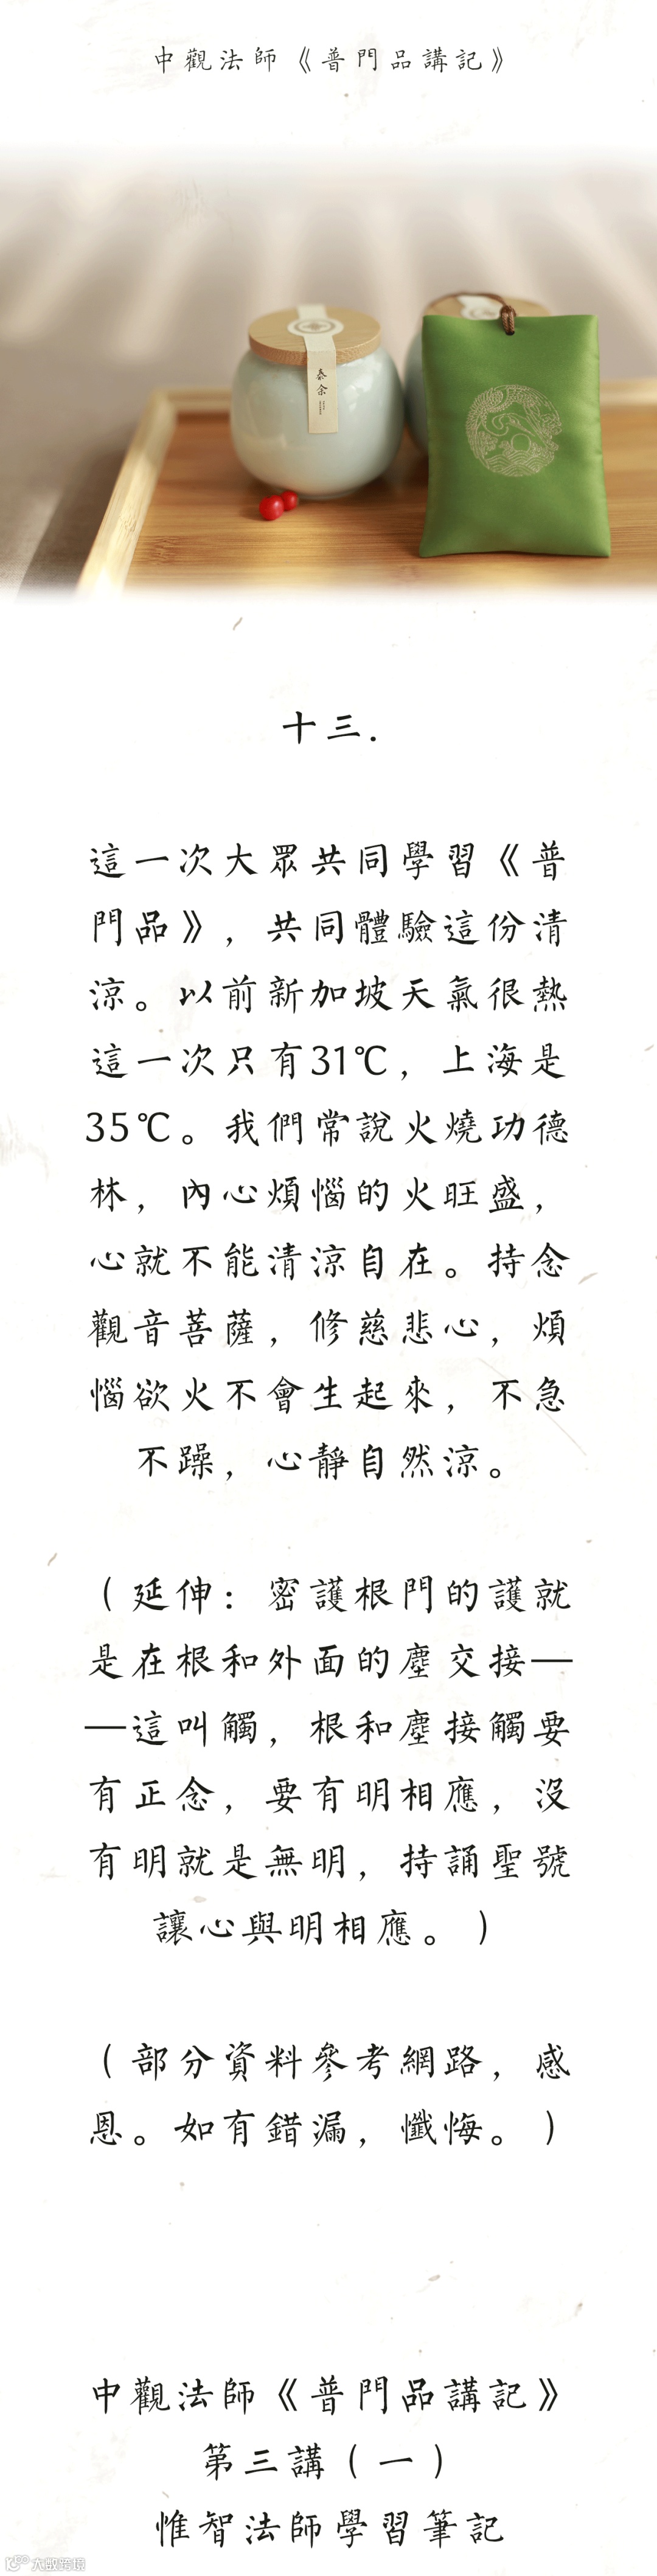 中觀法師《普門品講記》
泰余
十三.
這一次大眾共同學習《普
門品》，共同體驗這份清
涼。以前新加坡天氣很熱
這一次只有31℃，上海是
35℃。我們常說火燒功德
林，內心煩惱的火旺盛，
心就不能清涼自在。持念
觀音菩薩，修慈悲心，煩
惱欲火不會生起來，不急
不躁，心靜自然涼。
（延伸：密護根門的護就
是在根和外面的塵交接—
—這叫觸，根和塵接觸要
有正念，要有明相應，沒
有明就是無明，持誦聖號
讓心與明相應。）
（部分資料參考網路，感
恩。如有錯漏，懺悔。）
中觀法師《普門品講記》
第三講（一）
惟智法師學習筆記
大數跨境